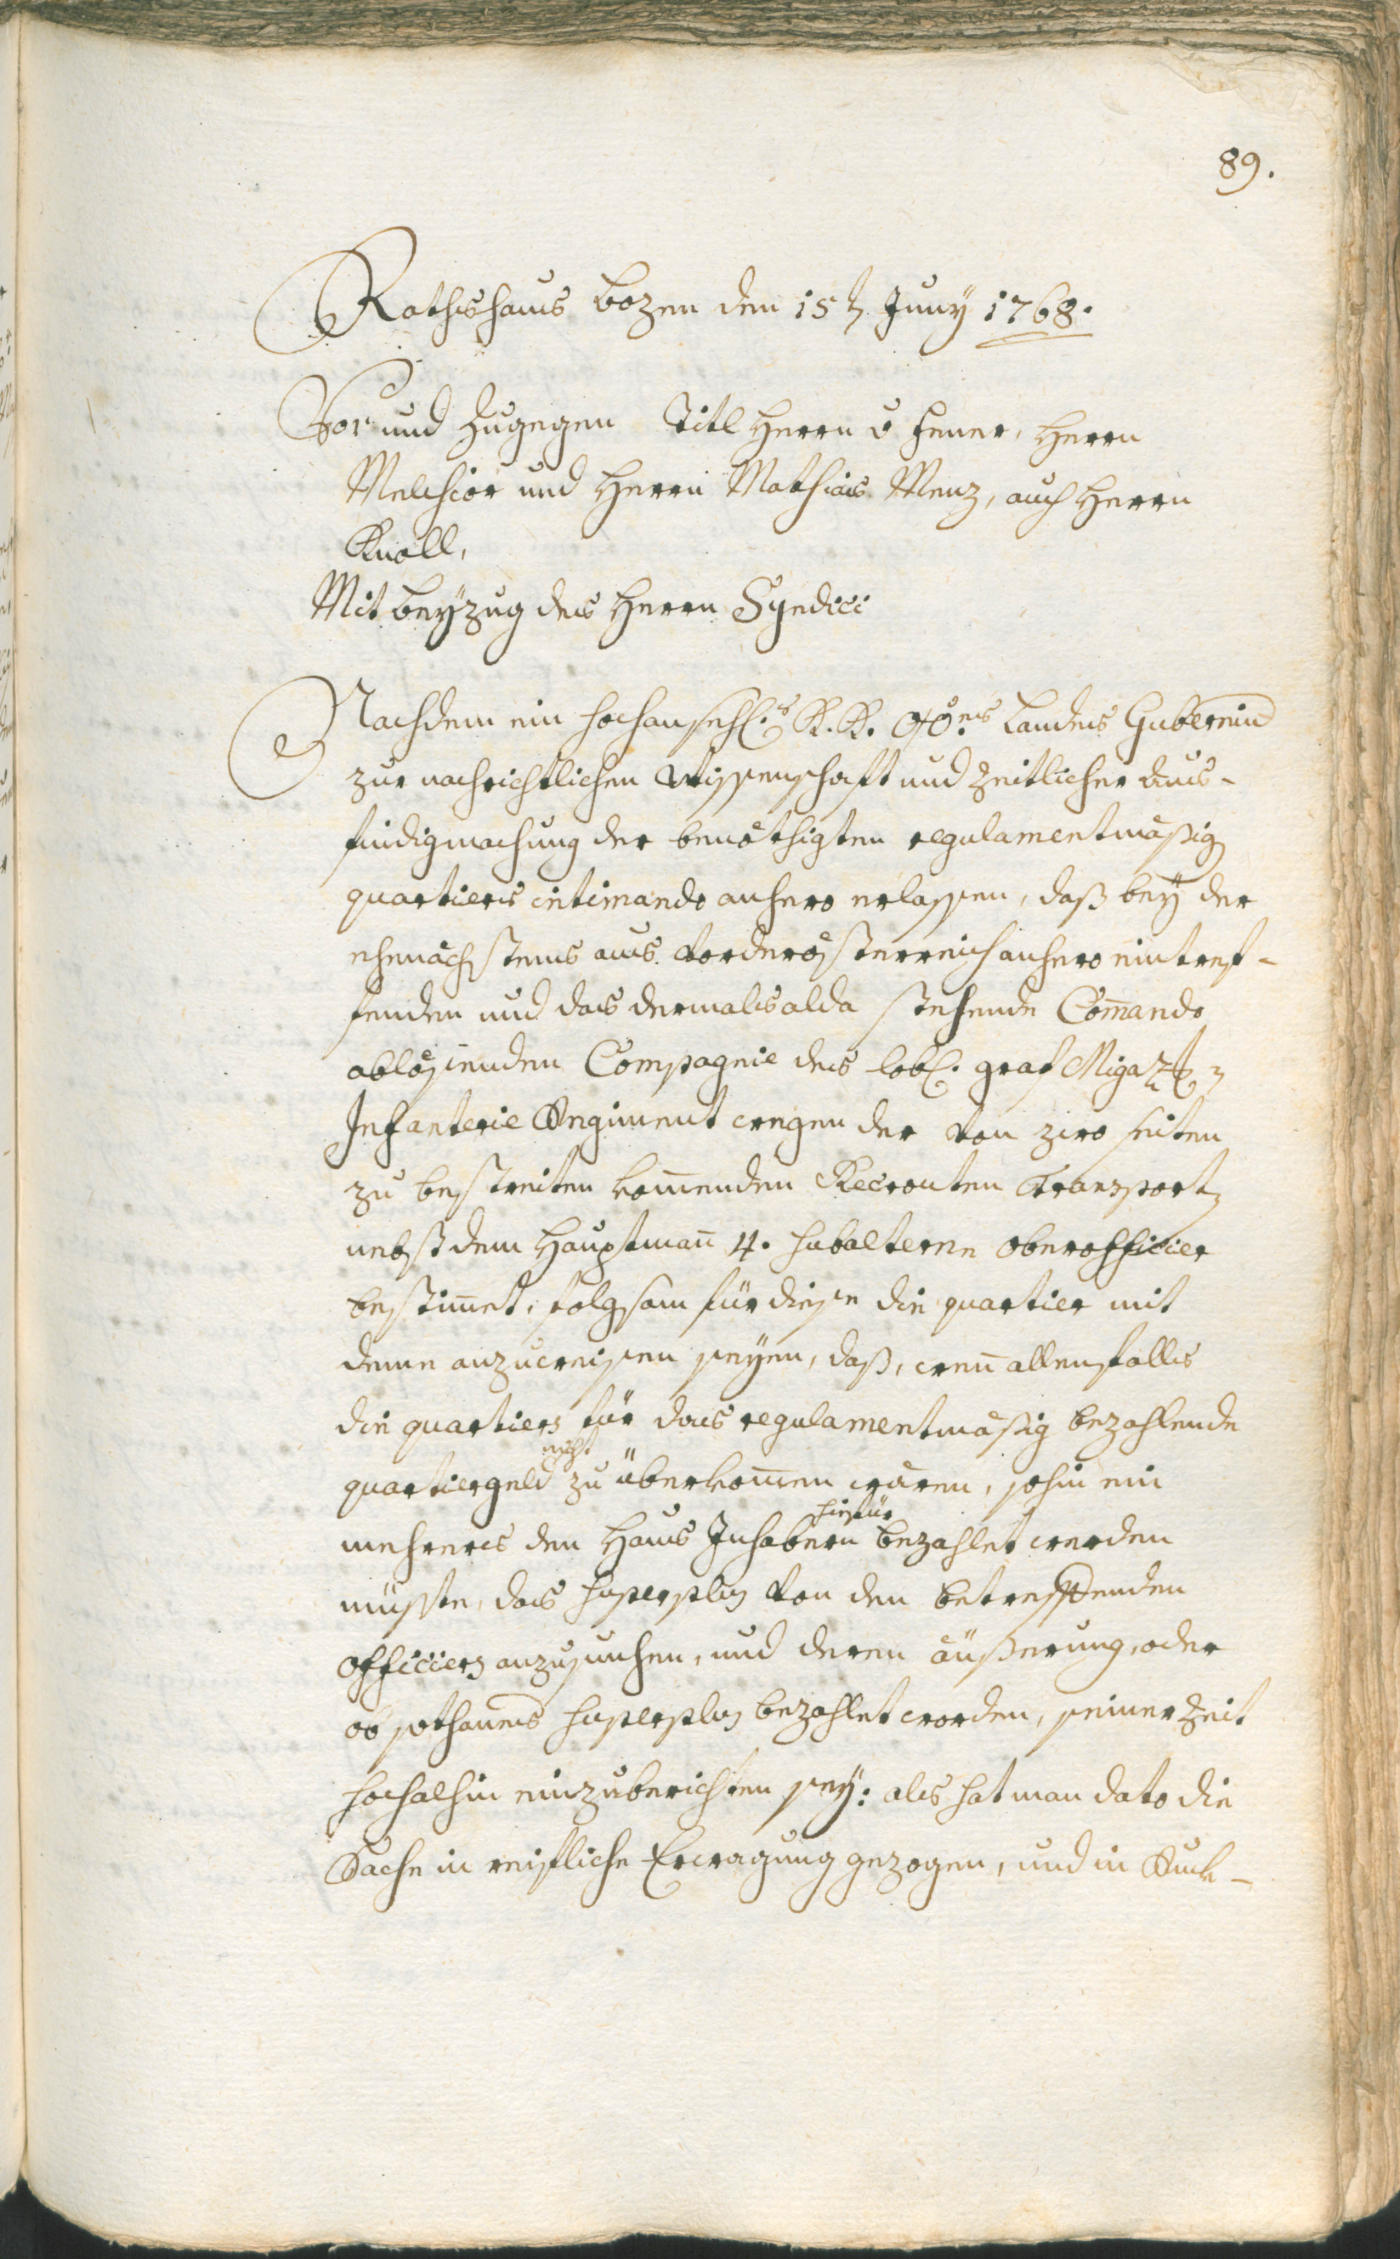 89.
Rathshaus Bozen den 15t Juny 1768.
Vor und zugegen Titl Herrn v Feuer, Herrn
Melchior und Herrn Mathias Menz, auch Herrn
Knoll,
Mit beyzug des Herrn Syndici
Nachdem ein hochansehl.s K.K. OÖ.es Landes Guberniu
zur nachrichtlichen Wissenschaft und zeitlicher Aus-
findigmachung der benöthigten regulamentmäßig
quartiers intimando anhero erlassen, daß bey der
ehenächstens aus Vorderösterreich anhero eintref-
fenden und das dermals alda stehende Comando
ablösenden Compagnie des lobl. graf Migazi
Infanterie Regiment wegen der von
zu bestreiten komenden Recrouten Transport
nebst dem Hauptman 4. subalterne oberofficier
bestimet, folgsam für diese die quartier mit
deme anzuweisen seyen, daß, wen allenfalls
die quartiers für das regulamentmäßig bezahlende
quartiergeld nicht zu überkomen wären, sohin ein
mehreres den Haus Inhabern hiefür bezahlet werden
müste, das superplus von den betreffenden
officiers anzusuchen, und deren äußerung, oder
ob sothanes superplus bezahlet worden, seiner Zeit
hochalhin einzuberichten sey: als hat man dato die
Sache in reifliche Erwagung gezogen, und in Ruck-